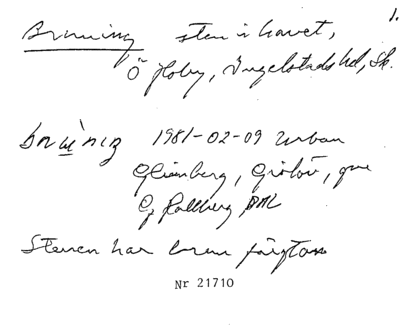 1.
Bruning sten i havet,
Ö Hoby, Ingelstads hd, Sk.
bruniŋ 1981-02-09 Urban
Glienberg, Gislöv, gm
G Hallberg DAL
Stenen har bruna färgton
Nr 21710